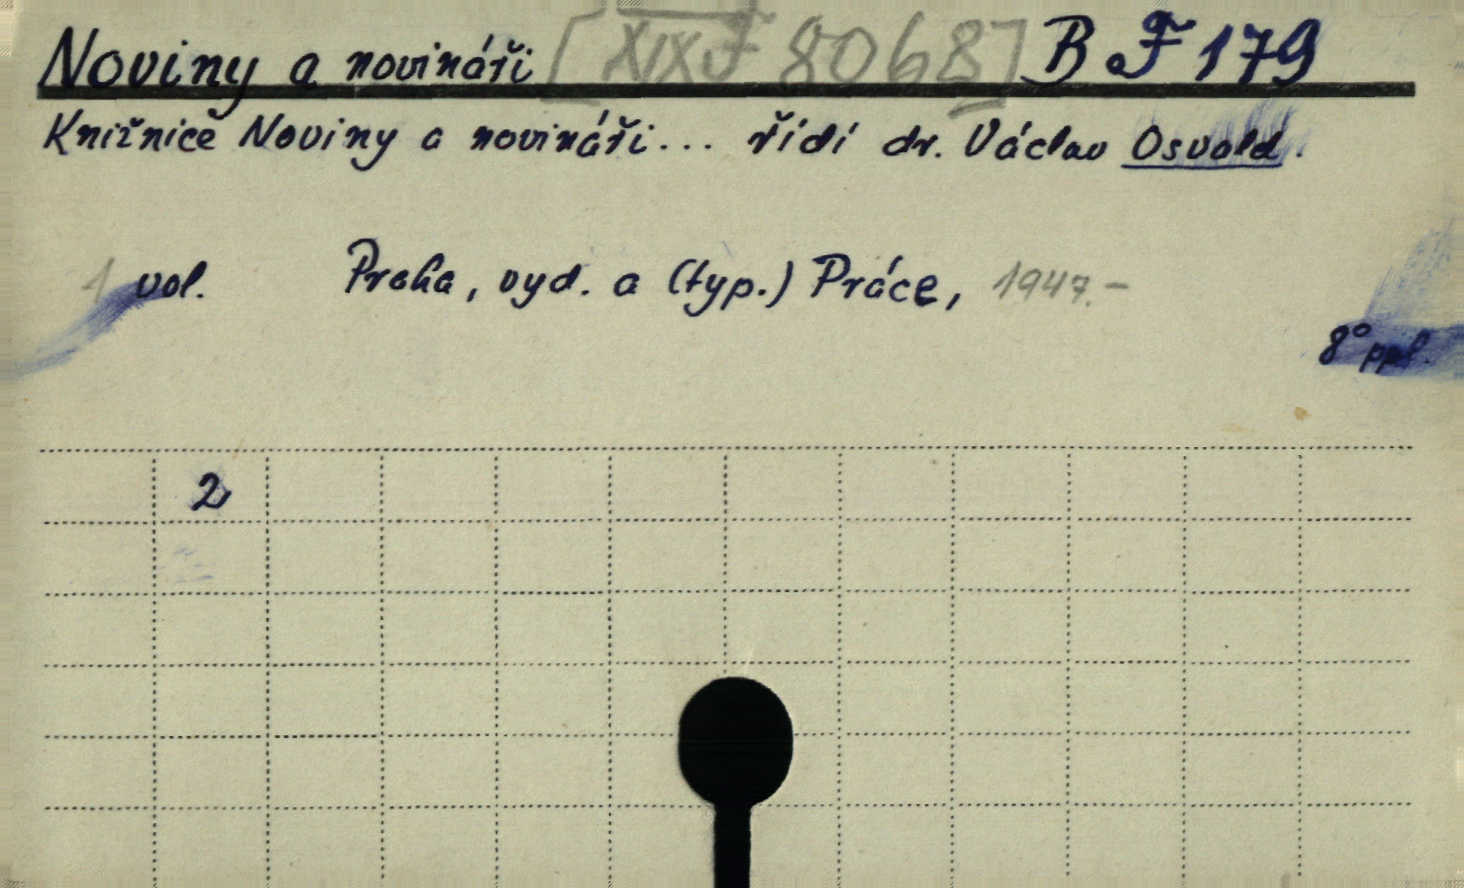 Noviny a novináři [XIX F 8068] B F 179
Knižnice Noviny a novináři... řídí dr. Václav Osvald.
1 vol. Praha, vyd. a (typ.) Práce, 1947.-
8° ppl.
2